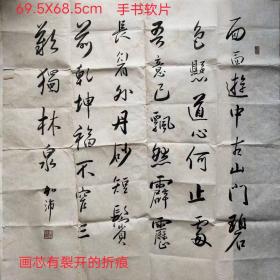 69.5X68.5cm 手书软片
而面遊中古山門碧
色照道心何止處
吾意已飄然霹靂
長眉外丹砂短鬢
前乾坤福不窄三
歎獨林泉 如沛
画芯有裂开的折痕